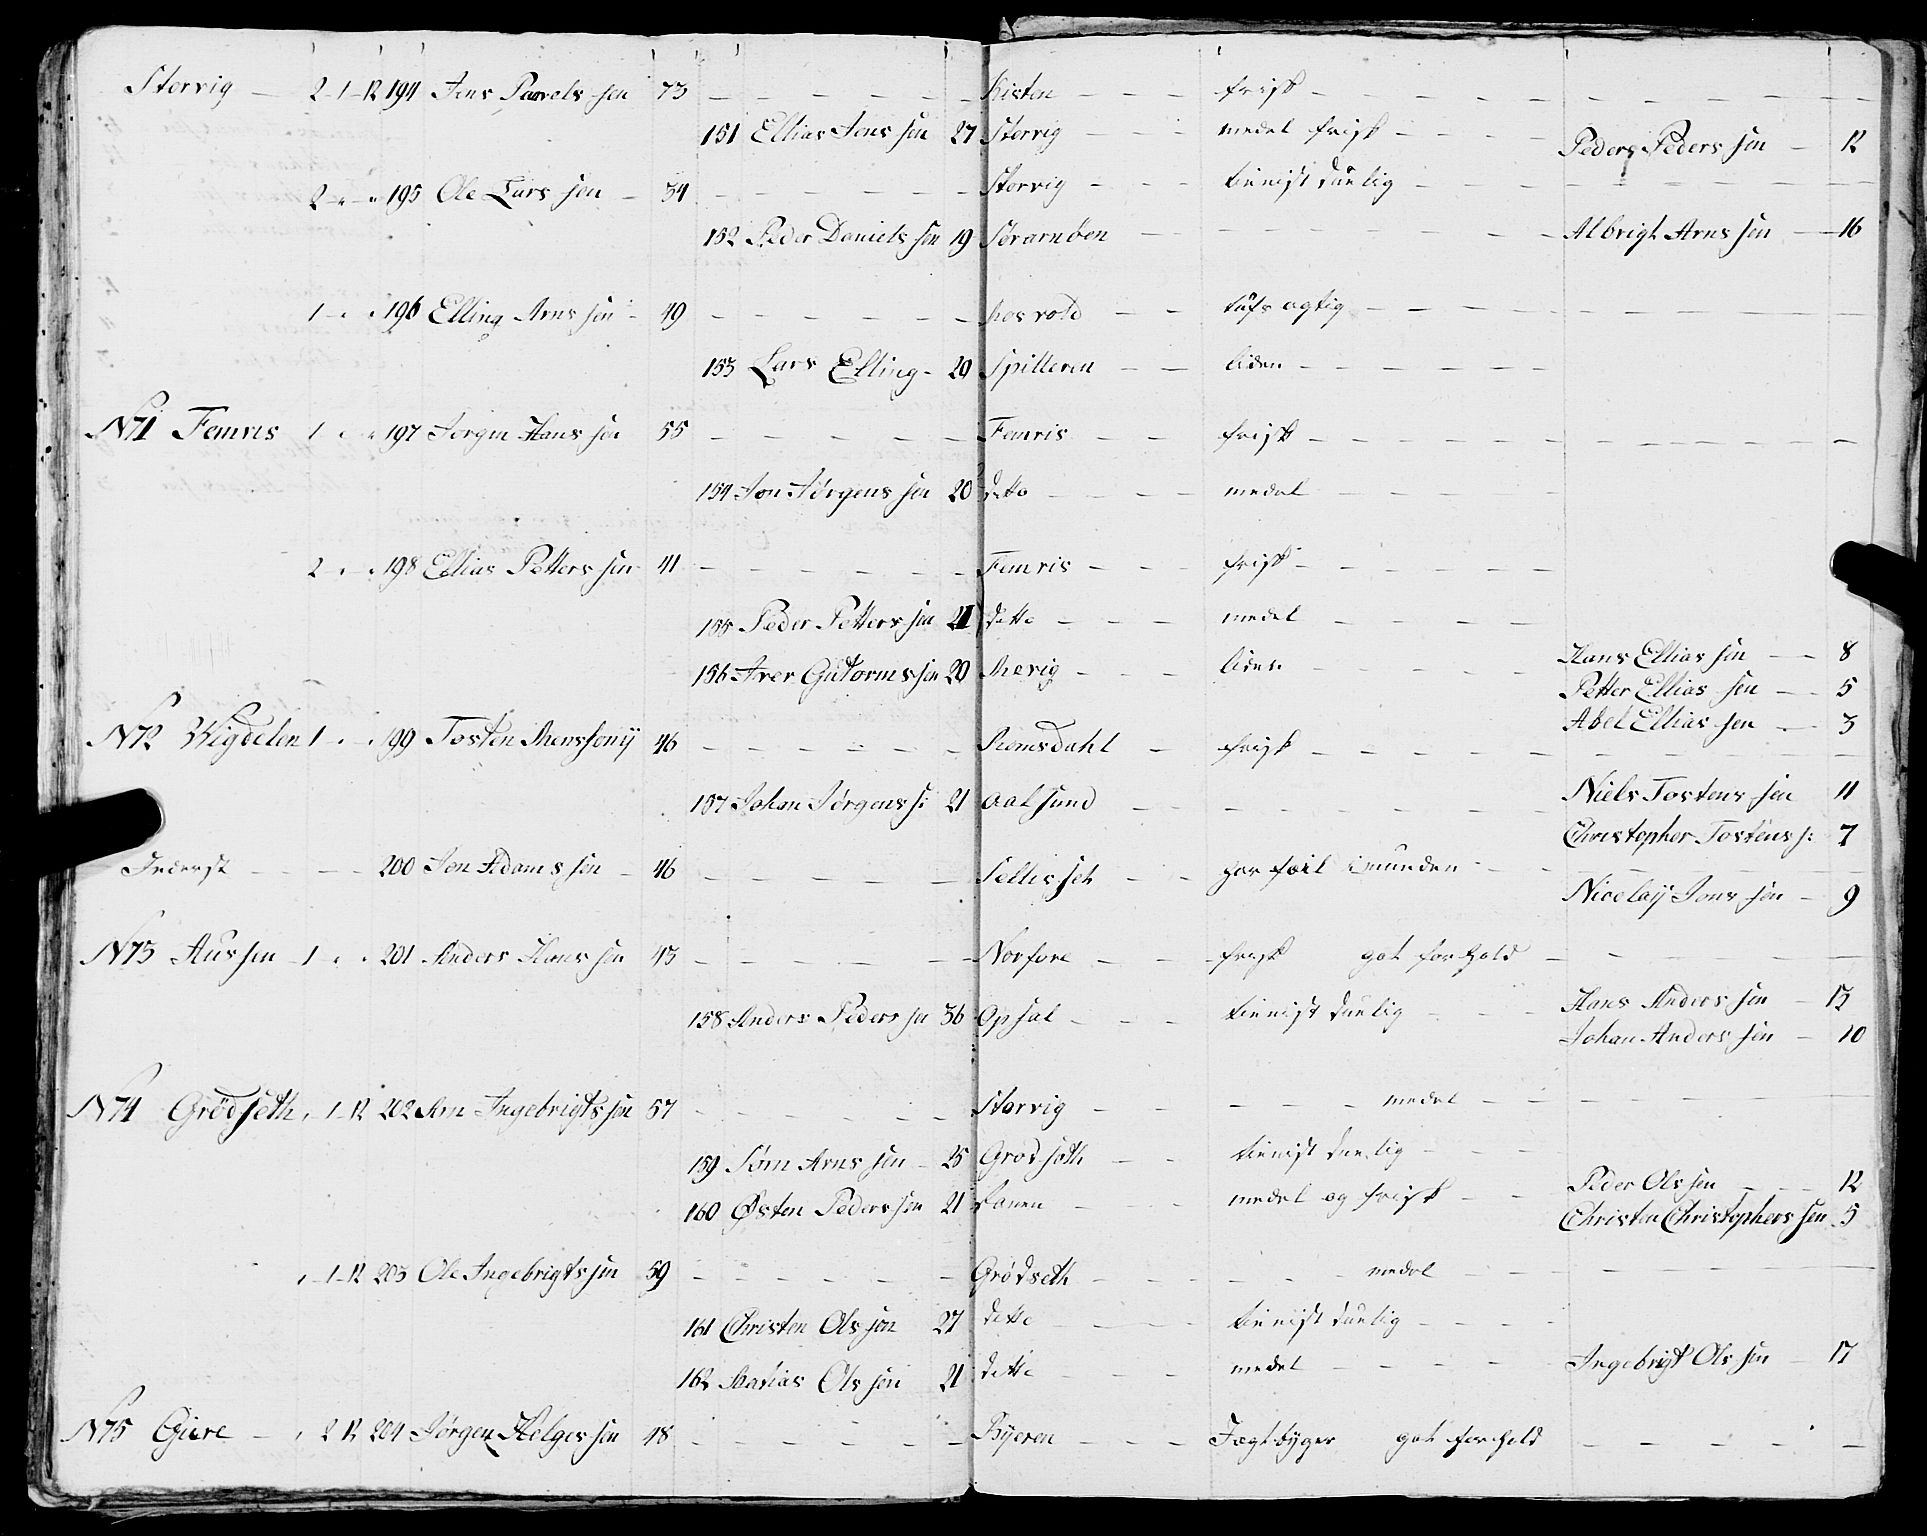 Storvig — 2-1-12 194 Jens Pavels sen 73 — Kisten — frisk —
151 Ellias Jens sen 27 Storvig — medel frisk — Peder Peders sen — 12
2 " " 195 Ole Lars sen — 54 — Storvig — tienist duelig —
152 Peder Daniels sen 19 Sørarnøen — Albrigt Arns sen — 16
1 - " " 196 Elling Arns sen - 49 — hosvold — tufs agtig —
153 Lars Elling - 29 Spilleren — liden —
N71 Femris 1 " " 197 Jørgen Hans sen 55 — Femris — frisk —
154 Jon Jørgens sen 20 ditto — medel —
2 " " 198 Ellias Petters sen 41 — Femris — frisk —
155 Peder Petters sen 21 ditto — medel —
156 Iver Gutorms sen 20 — liden — Hans Ellias sen — 8
Petter Ellias sen — 5
Abel Ellias sen — 3
N72 Wigdelen 1 - " 199 Tosten 46 — Romsdahl — frisk —
157 Johan Jørgens s: 21 Aalsund — Niels Tostens sen 11
Christopher Tostens s: 7
Inderst — 200 Jon Adams sen — 46 — Sellisset — har feil i munden —
Nicolaij Jons sen — 9
N73 Aussen 1 " " 201 Anders Hans sen 43 — Norfore — frisk got forhold —
158 Anders Peders sen 36 Opsal — tienist duelig — Hans Anders sen — 13
Johan Anders sen — 10
N74 Grødseth , 1-12 202 Arn Ingebrigts sen 57 — Storvig — medel —
159 Søm Arns sen — 25 Grødseth — tienist duelig —
160 Østen Peders sen 21 — medel og frisk — Peder Ols sen — 12
Christen Christophers sen 5
, -1-12 203 Ole Ingebrigts sen 59 — Grødseth — medel —
161 Christen Ols sen 27 ditto — tienist duelig —
162 Matias Ols sen 21 ditto — medel — Ingebrigt Ols sen — 17
N75 Giære — , 2 12 204 Jørgen Helges sen 48 — Byeren — Jægtbyger got forhold —